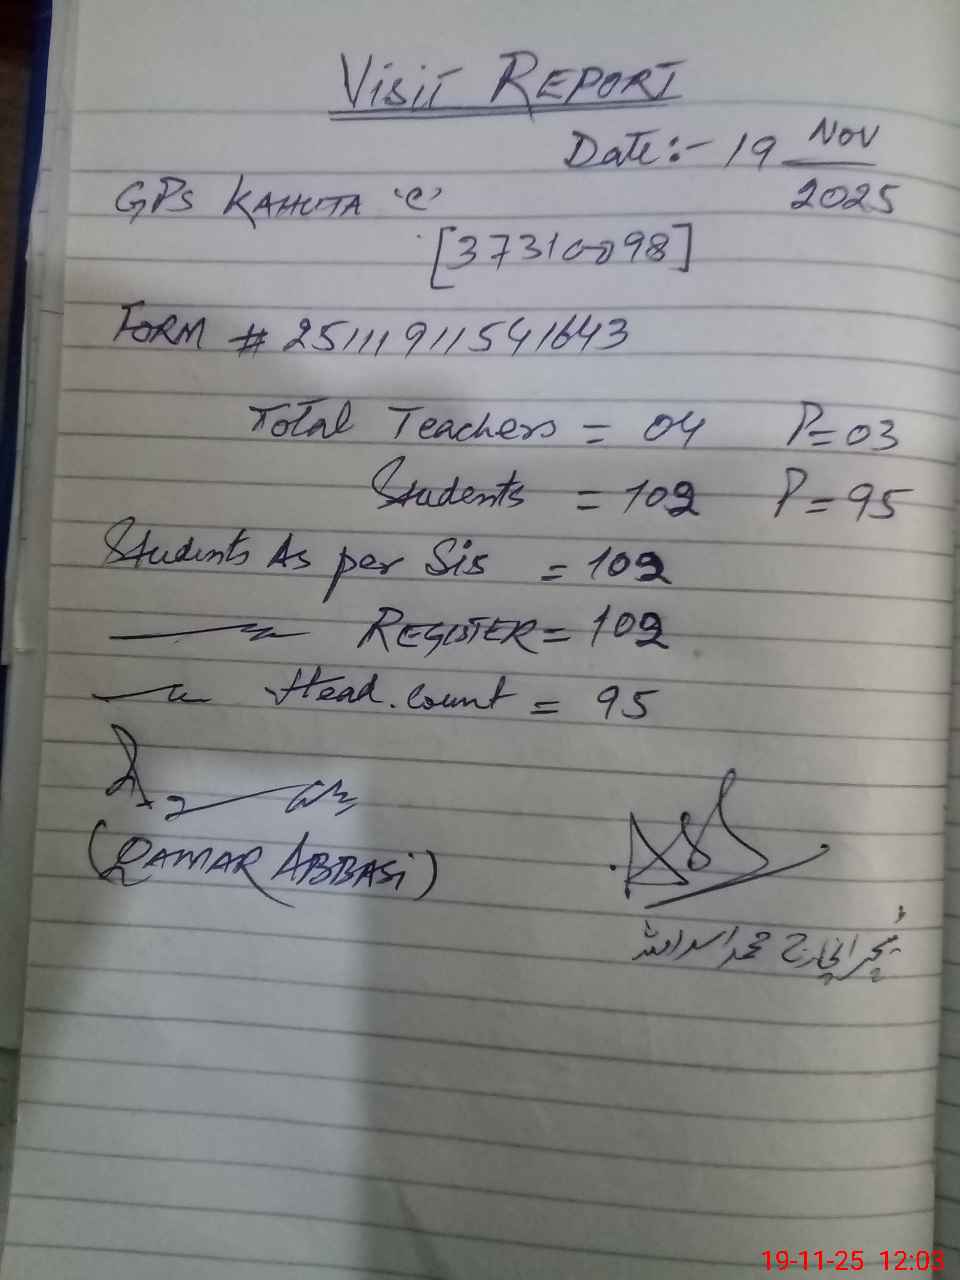 VISIT REPORT
Date:- 19 Nov
2025
GPS KAHUTA 'C'
[37310098]
FORM # 25111911541643
Total Teachers = 04 P=03
Students = 102 P=95
Students As per Sis = 102
REGISTER = 102
Head.count = 95
(QAMAR ABBASi)
ٹیچر انچارج محمد اسد اللہ
19-11-25 12:03